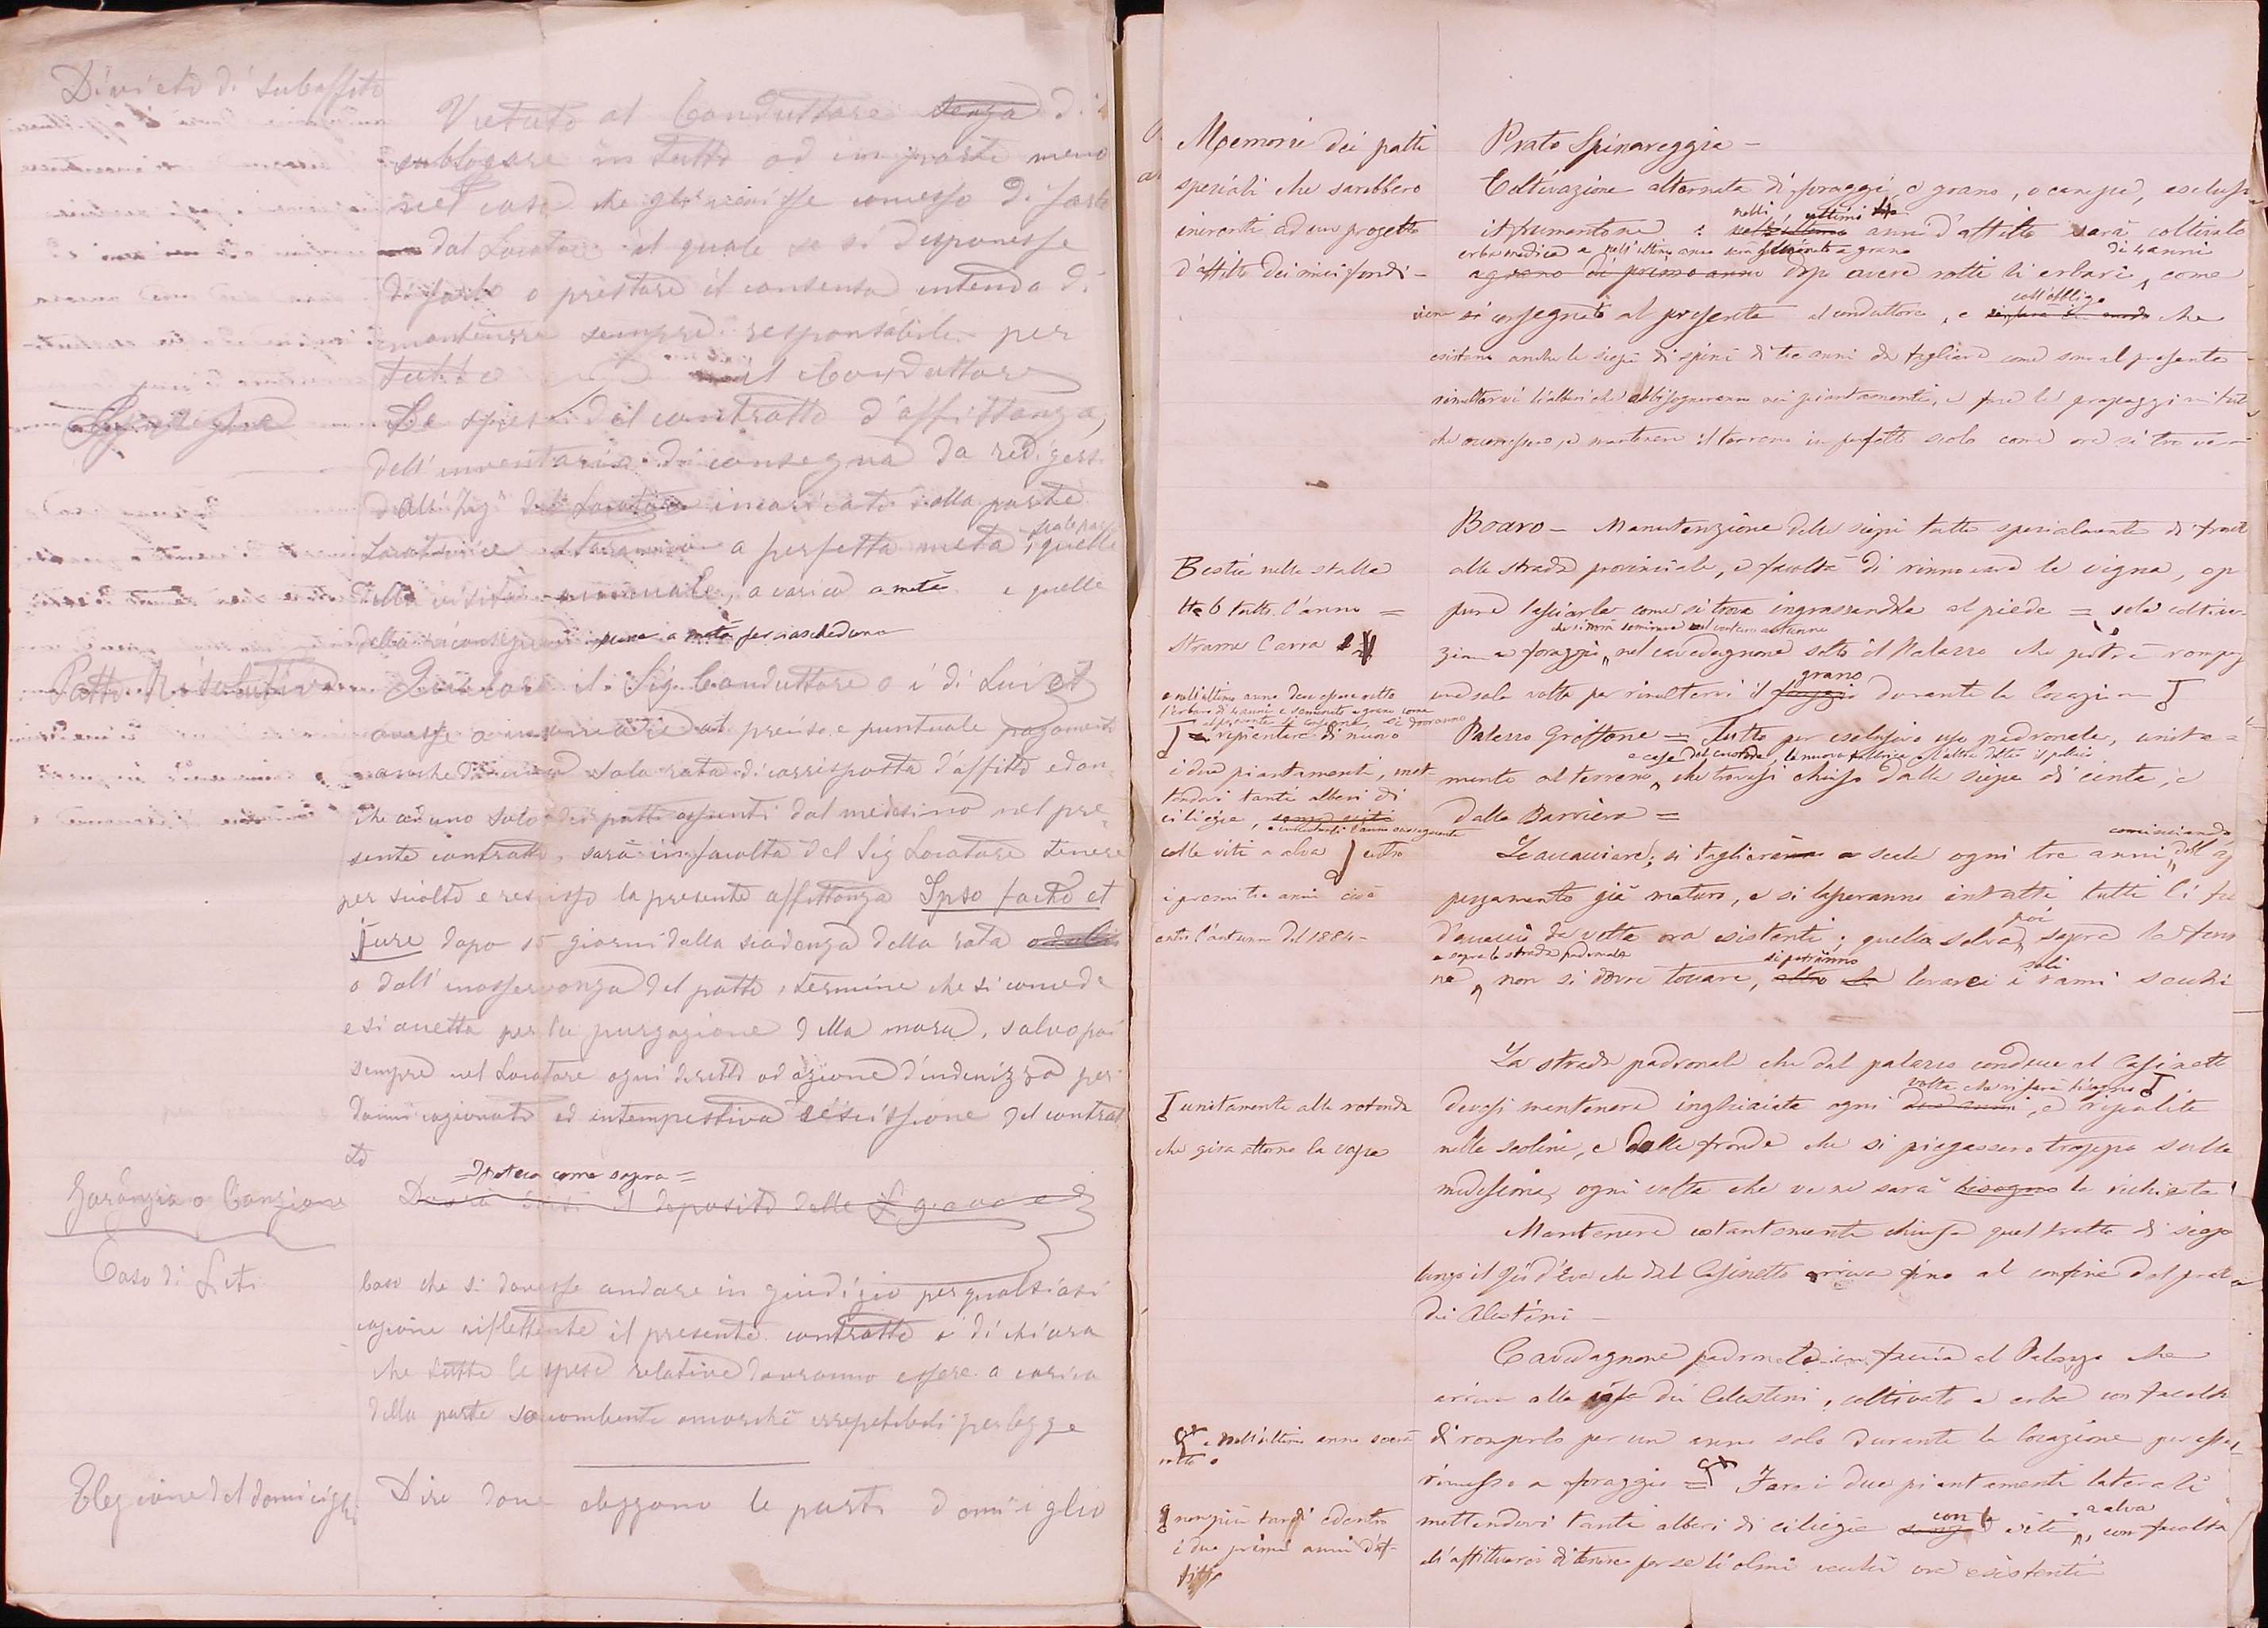 Divieto di subaffitto
Vietato al Conduttore senza di
sublocare in tutto od in parte meno
nel caso che gli venisse concesso di farlo
dal Locatore il quale se si disponesse
di farlo o prestare il consenso intende di
mantenere sempre responsabile per
tutto il Conduttore
Le spese del contratto d'affittanza,
dell'inventario di consegna da redigersi
dall'Ing.r del Locatore incaricato dalla parte
Locatrice staranno a perfetta metà, quelle
della visita annuale, a carico a metà e quelle
della riconsegna pure a metà per ciascheduno
Patto Risolutivo
Quando il Sig. Conduttore o i di Lui
avesse a mancare al preciso e puntuale pagamento
anche di una sola rata di corrisposta d'affitto ed an
che ad uno solo dei patti assunti dal medesimo nel pre
sente contratto, sarà in facoltà del Sig Locatore tenere
per sciolto e rescisso la presente affittanza Ipso facto et
jure dopo 15 giorni dalla scadenza della rata
o dall'inosservanza del patto, termine che si concede
e si accetta per la purgazione della mora, salvo poi
sempre nel Locatore ogni diritto ad azione d'indenizzo per
danni cagionati ed intempestiva rescissione del contrat
to
= Ipoteca come sopra =
Garanzia o Cauzione
Dovrà il deposito delle £
Caso di Liti
Caso che si dovesse andare in giudizio per qualsiasi
cagione riflettente il presente contratto si dichiara
che tutte le spese relative dovranno essere a carico
della parte socombente ancorchè irrepetibili per legge
Elezione del domicilio
Dire dove eleggono le parti domiciglio
Memorie dei patti
speciali che sarebbero
inerenti ad un progetto
d'affitto dei miei fondi -
Prato Spinareggia -
Coltivazione alternata di foraggi, e grano, o canepa, escluso
il frumentone; negli ultimi anni d'affitto sarà coltivato
erba medica e nell'ultimo anno sarà seminato a grano
a grano il primo anno dopo avere rotti li erbari di 4 anni, come
viene si consegnato al presente al conduttore, e coll'obbligo che
esistano anche le siepi di spini di tre anni da tagliare come sono al presente
rimettervi li alberi che abbisogneranno nei piantamenti, e pure le
che occorressero, e mantenere il terreno in perfetto scolo come ora si trova -
Bestie nella stalla
N° 6 tutto l'anno =
Strame Carra
Boaro - Manutenzione delle siepi tutte specialmente di fronte
alla strada provinciale, e facoltà di rinnovare la vigna, op
pure lasciarla come si trova ingrassandola al piede = sola coltiva-
zione a foraggio, nel cavedagnone sotto il Palazzo che potrà romper
una sola volta per rimettervi il grano foraggio durante la locazione
e nell'ultimo anno deve essere rotto
l'erbaro di 4 anni e seminato a grano come
al presente si consegna, si dovranno
ripiantare di nuovo
i due piantamenti, met-
tendovi tanti alberi di
ciliegie, senza viti
colle viti a alva entro
i primi tre anni cioè
entro l'autunno del 1884 -
Palazzo Griffone = Tutto per esclusivo uso padronale, unita =
e casa del custode, la nuova fattoria e l'altra detta il pollaio
mente al terreno, che trovasi chiuso dalla siepe di cinta, e
dalla Barriera =
Le accacciare, si taglieranno a scelte ogni tre anni, cominciando dall'ap
pezzamento già maturo, e si lasceranno intatti tutti li
d'acaccio da volta ora esistenti; quella selva poi sopra la forn
e sopra la strada padronale
ne, non si dovrà toccare, si potranno altro che levarci i soli rami secchi
La strada padronale che dal palazzo conduce al Casinetto
devesi mantenere inghiaiata ogni volta che vi sarà bisogno due anni, e ripulita
unitamente alla rotonda
che gira attorno la casa
nelle scoline, e dalle fronde che si piegassero troppo sulla
medesima, ogni volta che ve ne sarà bisogno la richiesta
Mantenere costantemente chiuso quel tratto di siepe
lungo il Rio d'Eva che dal Casinetto arriva fino al confine del prato
dei Celestini -
Cavedagnone padronale in faccia al Palazzo che
arriva alla casa dei Celestini, coltivato a erba con facoltà
di romperlo per un anno solo durante la locazione per esser
rimesso a foraggio = Fare i due piantamenti laterali
mettendovi tanti alberi di ciliegie senza con le viti a alva, con facoltà
all'affittuario di tenere per se li olmi vecchi ora esistenti
e nell'ultimo anno sarà
rotto
non più tardi e dentro
i due primi anni d'af-
fitto